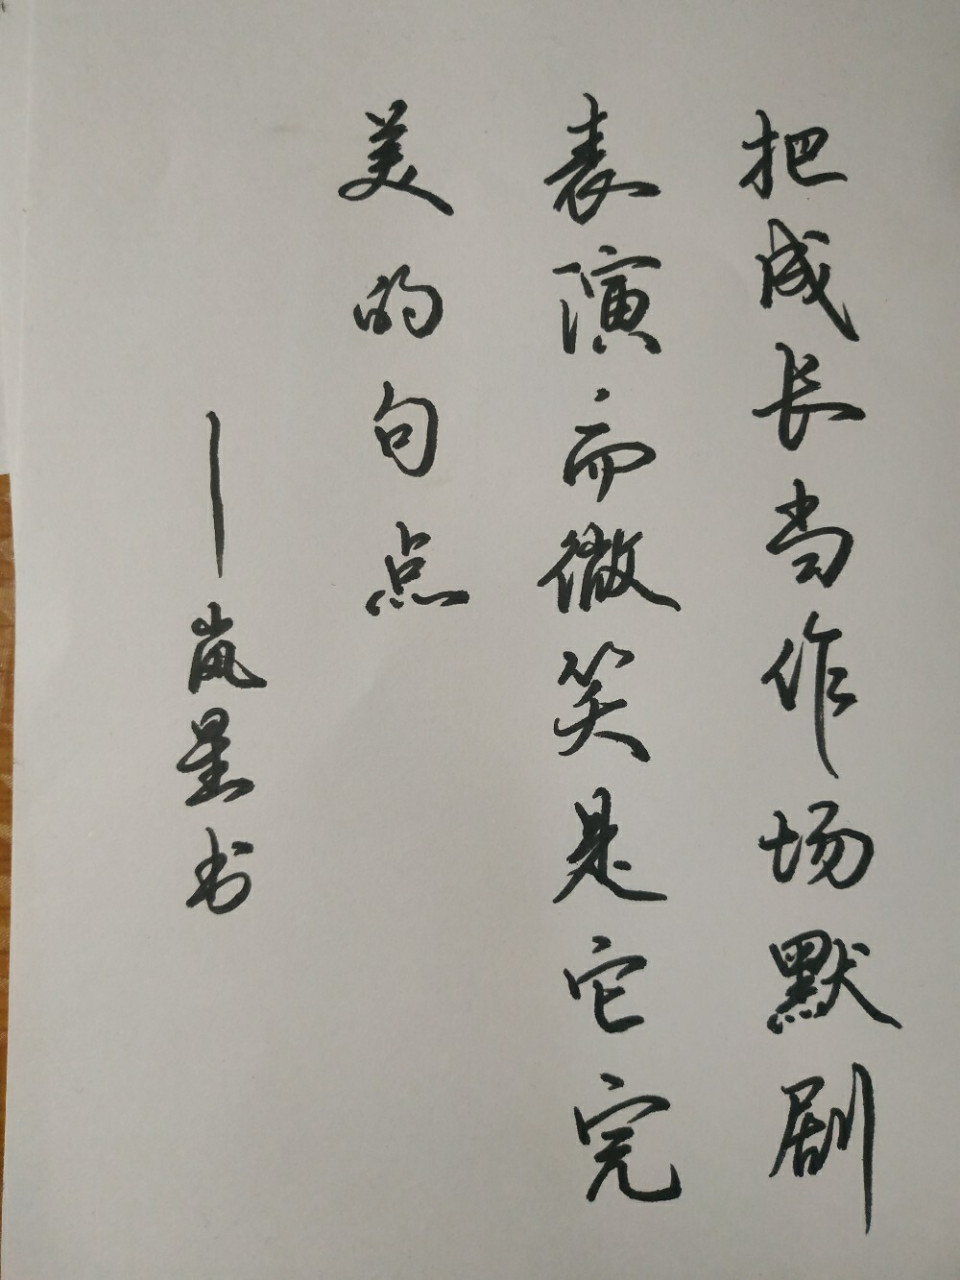 把成长当作场默剧
表演而微笑是它完
美的句点
——岚星书